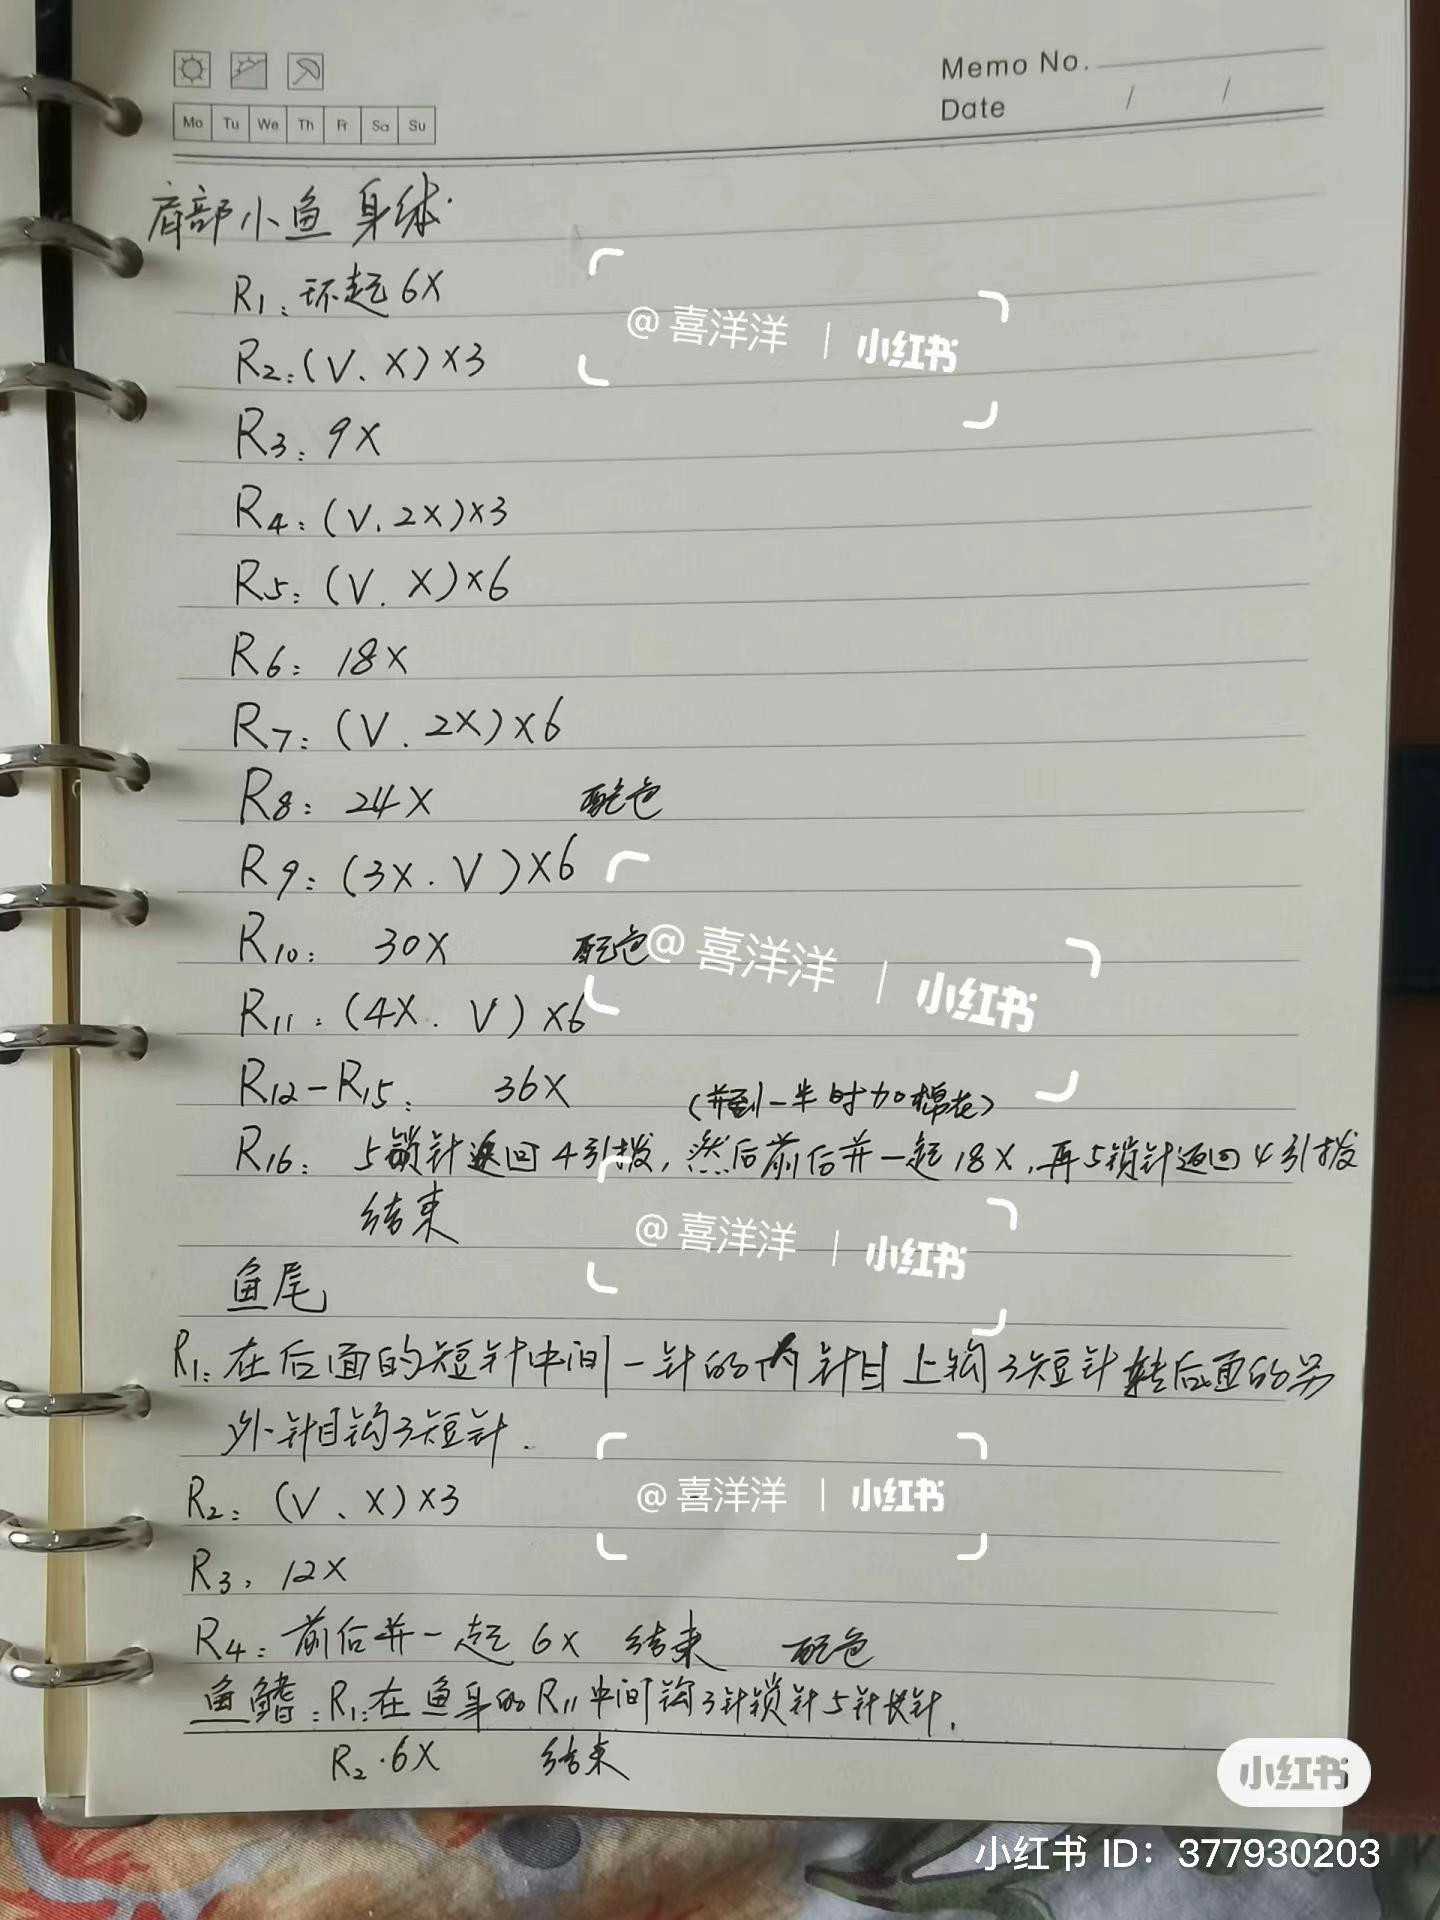 Memo No.
Mo Tu We Th Fr Sa Su
Date / /
肩部小鱼 身线.
R1: 环起 6X
@喜洋洋 | 小红书
R2: (V、X)×3
R3. 9X
R4: (V. 2X)×3
R5: (V. X)×6
R6: 18X
R7: (V. 2X)×6
R8: 24X 配色
R9: (3X. V)×6
R10: 30X 配色
@喜洋洋 | 小红书
R11: (4X. V)×6
R12-R15: 36X (并到一半时加棉花)
R16: 5锁针返回4引拨, 然后前后并一起18X, 再5锁针返回4引拨
结束
@喜洋洋 | 小红书
鱼尾
R1: 在后面的短针中间一针的内针目上钩3短针 转后面的另
外针目钩3短针.
R2: (V、X)×3
@喜洋洋 | 小红书
R3. 12X
R4: 前后并一起 6X 结束 配色
鱼鳍: R1: 在鱼身的R11中间钩3针锁针5针长针.
R2. 6X 结束
小红书
小红书 ID: 377930203